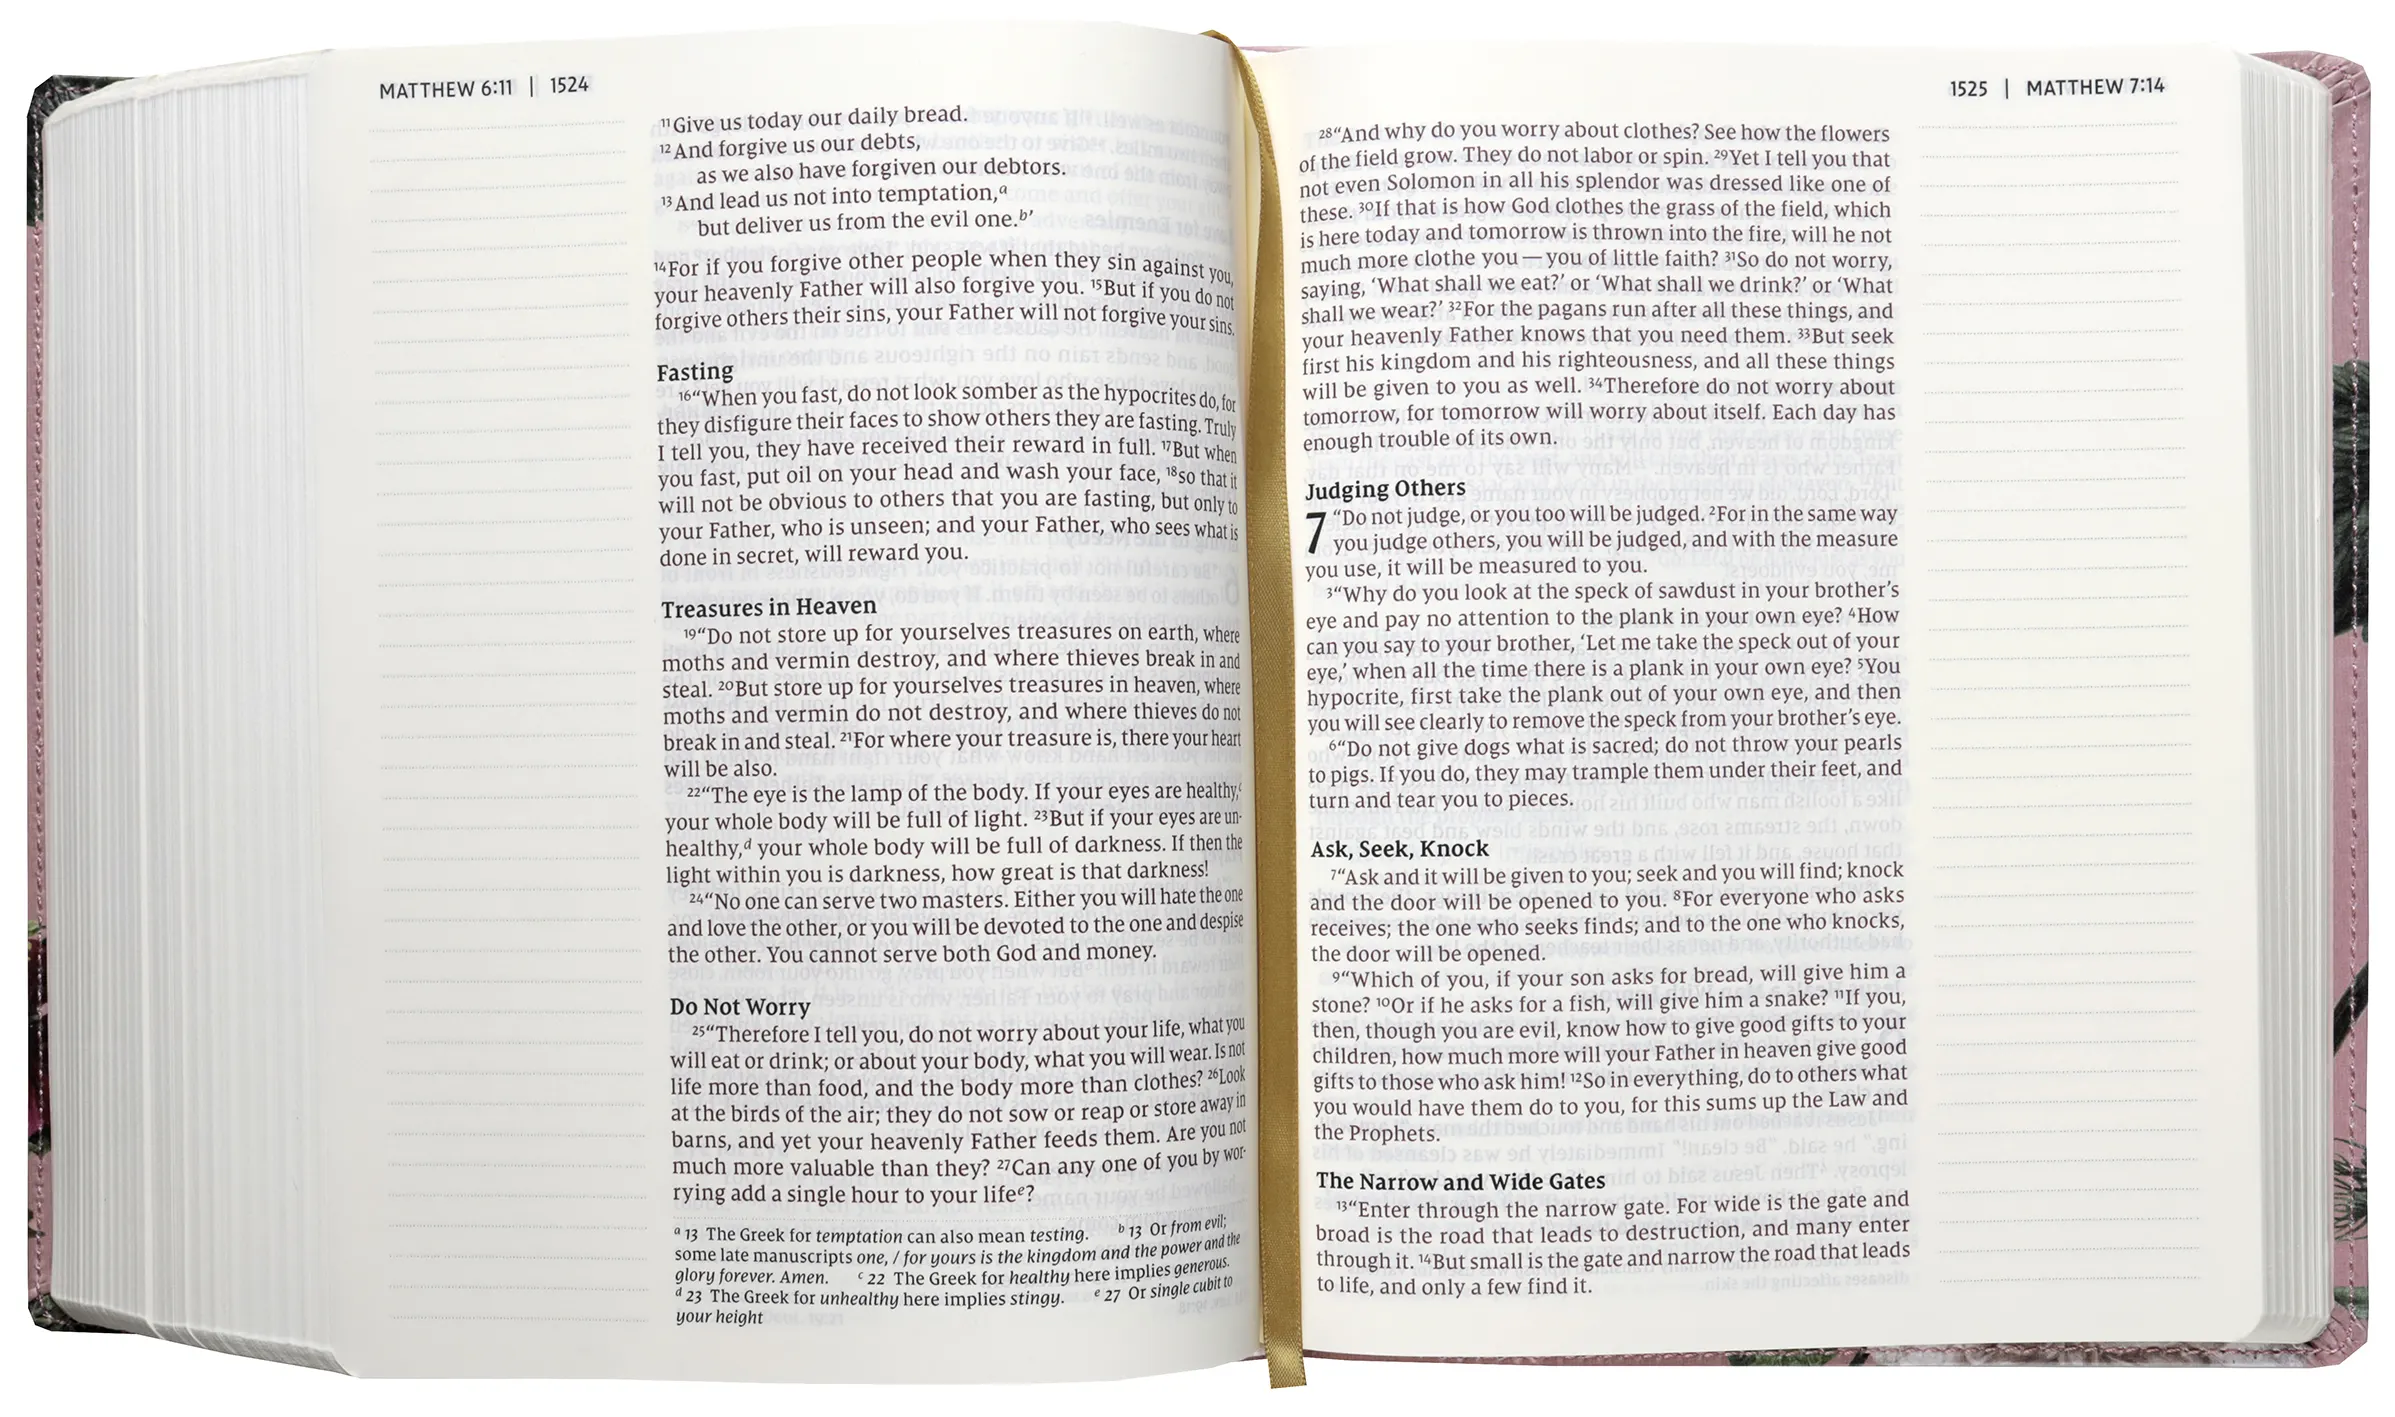 MATTHEW 6:11 | 1524
¹¹Give us today our daily bread.
¹²And forgive us our debts,
as we also have forgiven our debtors.
¹³And lead us not into temptation,ᵃ
but deliver us from the evil one.ᵇ’
¹⁴For if you forgive other people when they sin against you,
your heavenly Father will also forgive you. ¹⁵But if you do not
forgive others their sins, your Father will not forgive your sins.
Fasting
¹⁶“When you fast, do not look somber as the hypocrites do, for
they disfigure their faces to show others they are fasting. Truly
I tell you, they have received their reward in full. ¹⁷But when
you fast, put oil on your head and wash your face, ¹⁸so that it
will not be obvious to others that you are fasting, but only to
your Father, who is unseen; and your Father, who sees what is
done in secret, will reward you.
Treasures in Heaven
¹⁹“Do not store up for yourselves treasures on earth, where
moths and vermin destroy, and where thieves break in and
steal. ²⁰But store up for yourselves treasures in heaven, where
moths and vermin do not destroy, and where thieves do not
break in and steal. ²¹For where your treasure is, there your heart
will be also.
²²“The eye is the lamp of the body. If your eyes are healthy,ᶜ
your whole body will be full of light. ²³But if your eyes are un-
healthy,ᵈ your whole body will be full of darkness. If then the
light within you is darkness, how great is that darkness!
²⁴“No one can serve two masters. Either you will hate the one
and love the other, or you will be devoted to the one and despise
the other. You cannot serve both God and money.
Do Not Worry
²⁵“Therefore I tell you, do not worry about your life, what you
will eat or drink; or about your body, what you will wear. Is not
life more than food, and the body more than clothes? ²⁶Look
at the birds of the air; they do not sow or reap or store away in
barns, and yet your heavenly Father feeds them. Are you not
much more valuable than they? ²⁷Can any one of you by wor-
rying add a single hour to your lifeᵉ?
ᵃ 13 The Greek for temptation can also mean testing. ᵇ 13 Or from evil;
some late manuscripts one, / for yours is the kingdom and the power and the
glory forever. Amen. ᶜ 22 The Greek for healthy here implies generous.
ᵈ 23 The Greek for unhealthy here implies stingy. ᵉ 27 Or single cubit to
your height
1525 | MATTHEW 7:14
²⁸“And why do you worry about clothes? See how the flowers
of the field grow. They do not labor or spin. ²⁹Yet I tell you that
not even Solomon in all his splendor was dressed like one of
these. ³⁰If that is how God clothes the grass of the field, which
is here today and tomorrow is thrown into the fire, will he not
much more clothe you — you of little faith? ³¹So do not worry,
saying, ‘What shall we eat?’ or ‘What shall we drink?’ or ‘What
shall we wear?’ ³²For the pagans run after all these things, and
your heavenly Father knows that you need them. ³³But seek
first his kingdom and his righteousness, and all these things
will be given to you as well. ³⁴Therefore do not worry about
tomorrow, for tomorrow will worry about itself. Each day has
enough trouble of its own.
Judging Others
7 “Do not judge, or you too will be judged. ²For in the same way
you judge others, you will be judged, and with the measure
you use, it will be measured to you.
³“Why do you look at the speck of sawdust in your brother’s
eye and pay no attention to the plank in your own eye? ⁴How
can you say to your brother, ‘Let me take the speck out of your
eye,’ when all the time there is a plank in your own eye? ⁵You
hypocrite, first take the plank out of your own eye, and then
you will see clearly to remove the speck from your brother’s eye.
⁶“Do not give dogs what is sacred; do not throw your pearls
to pigs. If you do, they may trample them under their feet, and
turn and tear you to pieces.
Ask, Seek, Knock
⁷“Ask and it will be given to you; seek and you will find; knock
and the door will be opened to you. ⁸For everyone who asks
receives; the one who seeks finds; and to the one who knocks,
the door will be opened.
⁹“Which of you, if your son asks for bread, will give him a
stone? ¹⁰Or if he asks for a fish, will give him a snake? ¹¹If you,
then, though you are evil, know how to give good gifts to your
children, how much more will your Father in heaven give good
gifts to those who ask him! ¹²So in everything, do to others what
you would have them do to you, for this sums up the Law and
the Prophets.
The Narrow and Wide Gates
¹³“Enter through the narrow gate. For wide is the gate and
broad is the road that leads to destruction, and many enter
through it. ¹⁴But small is the gate and narrow the road that leads
to life, and only a few find it.